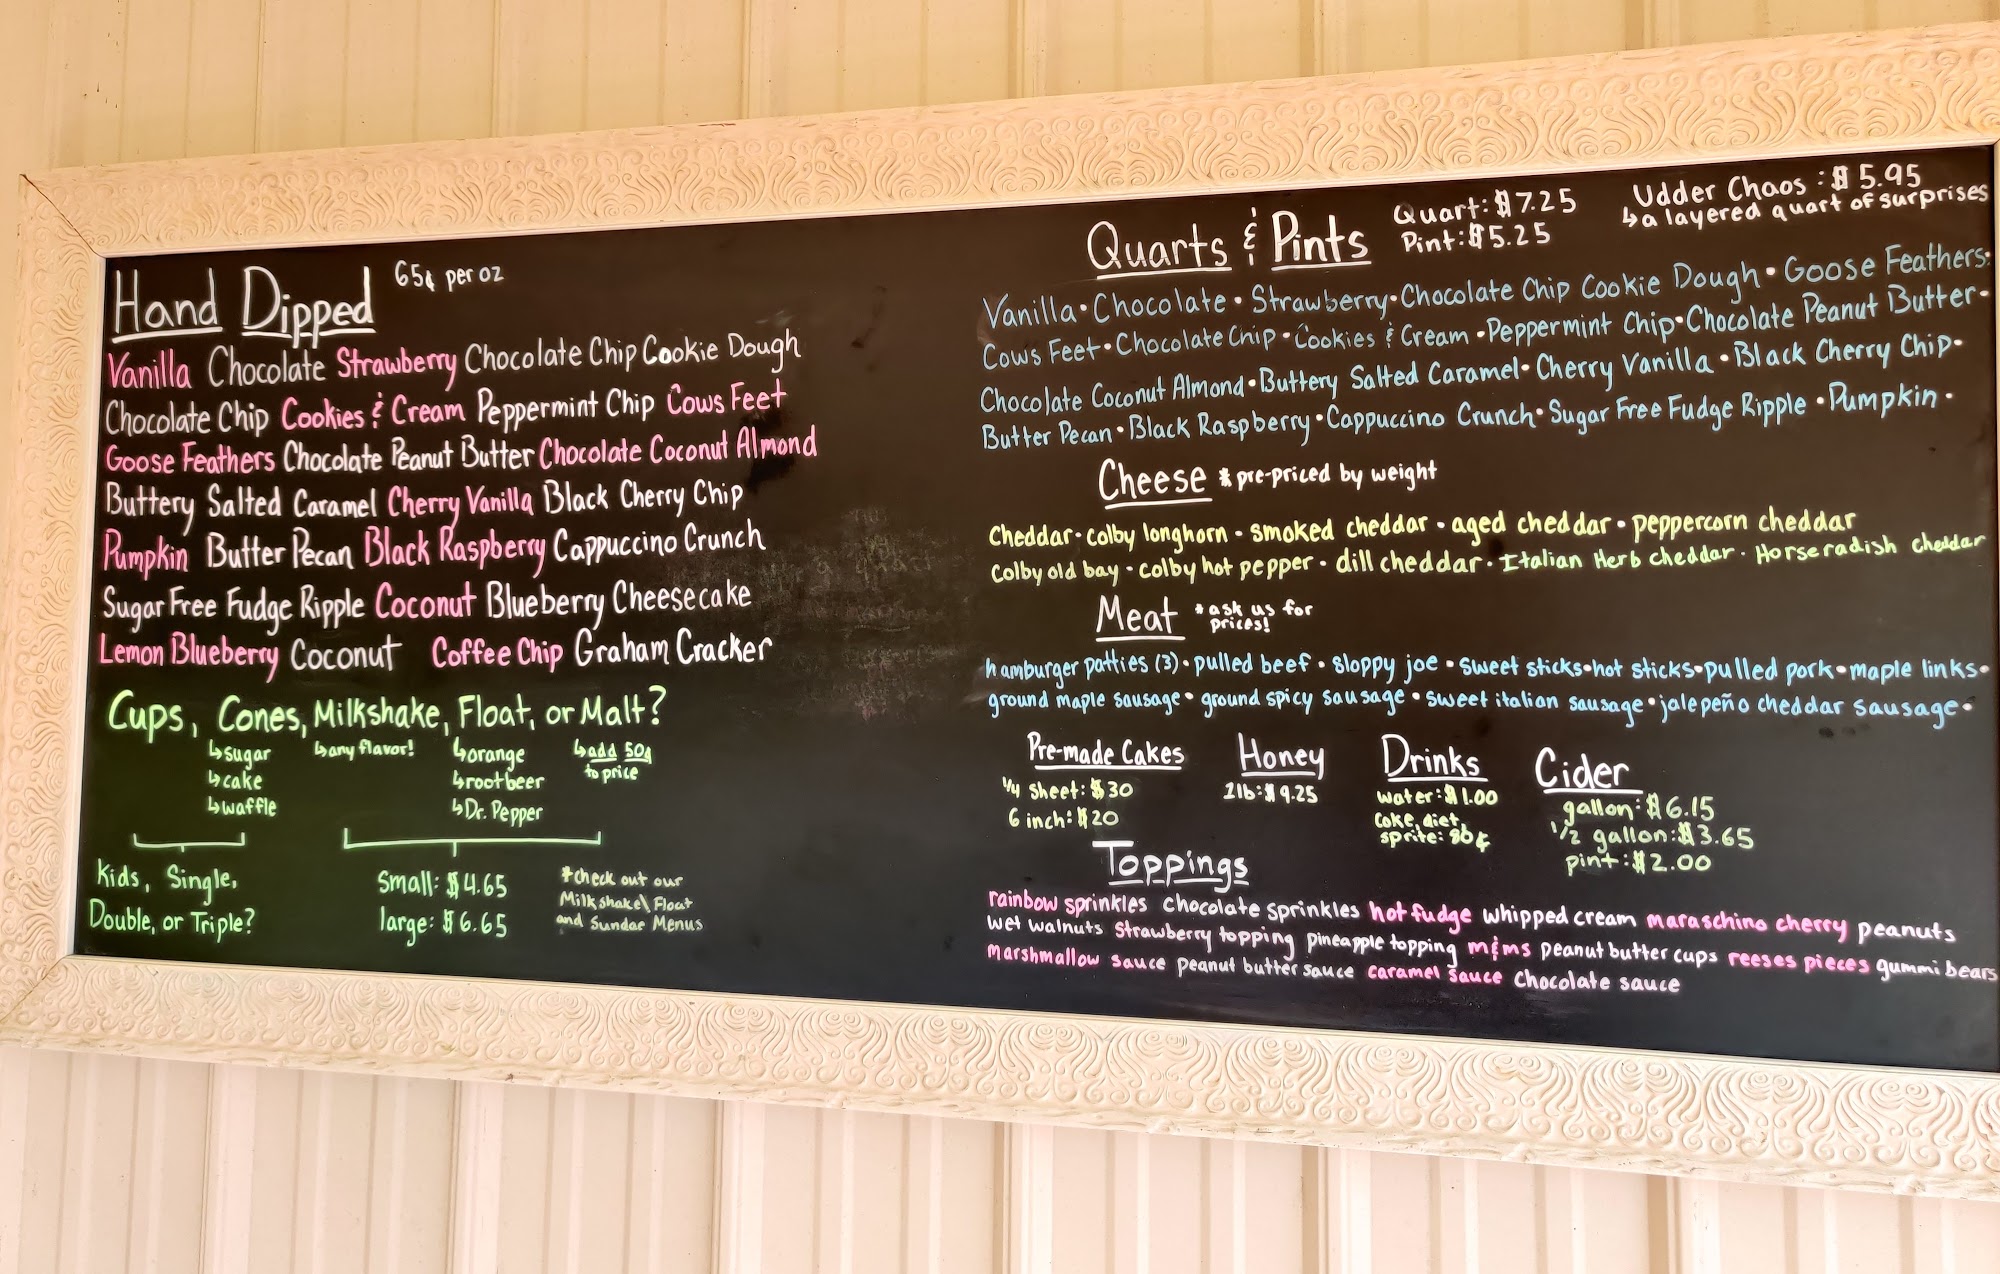 Hand Dipped 65¢ per oz
Vanilla Chocolate Strawberry Chocolate Chip Cookie Dough
Chocolate Chip Cookies & Cream Peppermint Chip Cows Feet
Goose Feathers Chocolate Peanut Butter Chocolate Coconut Almond
Buttery Salted Caramel Cherry Vanilla Black Cherry Chip
Pumpkin Butter Pecan Black Raspberry Cappuccino Crunch
Sugar Free Fudge Ripple Coconut Blueberry Cheesecake
Lemon Blueberry Coconut Coffee Chip Graham Cracker
Cups, Cones, Milkshake, Float, or Malt?
↳sugar ↳any flavor! ↳orange ↳add 50¢
↳cake ↳rootbeer to price
↳waffle ↳Dr. Pepper
Kids, Single,
Double, or Triple?
small: $4.65
large: $6.65
*check out our
Milkshake\ Float
and Sundae Menus
Quarts & Pints
Quart: $7.25
Pint: $5.25
Udder Chaos: $5.95
↳a layered quart of surprises
Vanilla • Chocolate • Strawberry • Chocolate Chip Cookie Dough • Goose Feathers •
Cows Feet • Chocolate Chip • Cookies & Cream • Peppermint Chip • Chocolate Peanut Butter •
Chocolate Coconut Almond • Buttery Salted Caramel • Cherry Vanilla • Black Cherry Chip •
Butter Pecan • Black Raspberry • Cappuccino Crunch • Sugar Free Fudge Ripple • Pumpkin •
Cheese *pre-priced by weight
Cheddar • colby longhorn • smoked cheddar • aged cheddar • peppercorn cheddar
Colby old bay • colby hot pepper • dill cheddar • Italian Herb cheddar • Horseradish cheddar
Meat *ask us for
prices!
hamburger patties (3) • pulled beef • sloppy joe • sweet sticks • hot sticks • pulled pork • maple links •
ground maple sausage • ground spicy sausage • sweet italian sausage • jalepeño cheddar sausage •
Pre-made Cakes
1/4 sheet: $30
6 inch: $20
Honey
2lb: $9.25
Drinks
water: $1.00
coke, diet,
sprite: 80¢
Cider
gallon: $6.15
1/2 gallon: $3.65
pint: $2.00
Toppings
rainbow sprinkles chocolate sprinkles hot fudge whipped cream maraschino cherry peanuts
wet walnuts strawberry topping pineapple topping m&ms peanut butter cups reeses pieces gummi bears
marshmallow sauce peanut butter sauce caramel sauce chocolate sauce